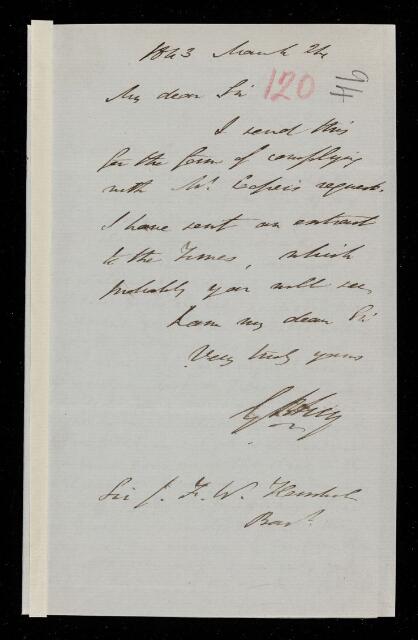 1843 March 24
My dear Sir 120 94
I send this
for the form of complying
with Mr. Cooper's request.
I have sent an extract
to the Times, which
probably you will see,
I am my dear Sir
Very truly yours
G B Airy
Sir J. F. W. Herschel
Bart.